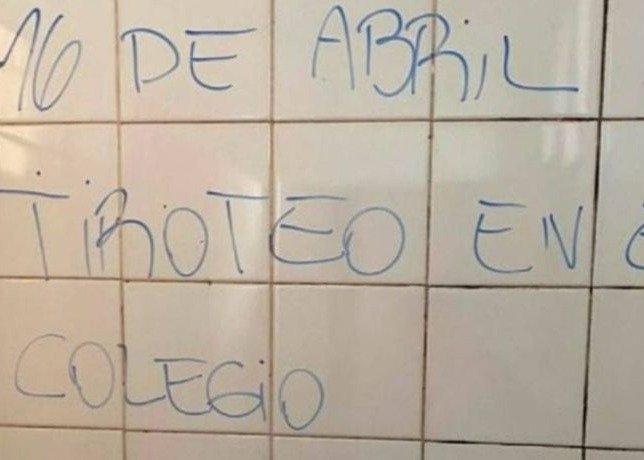 16 DE ABRiL
TiROTEO EN
COLEGiO